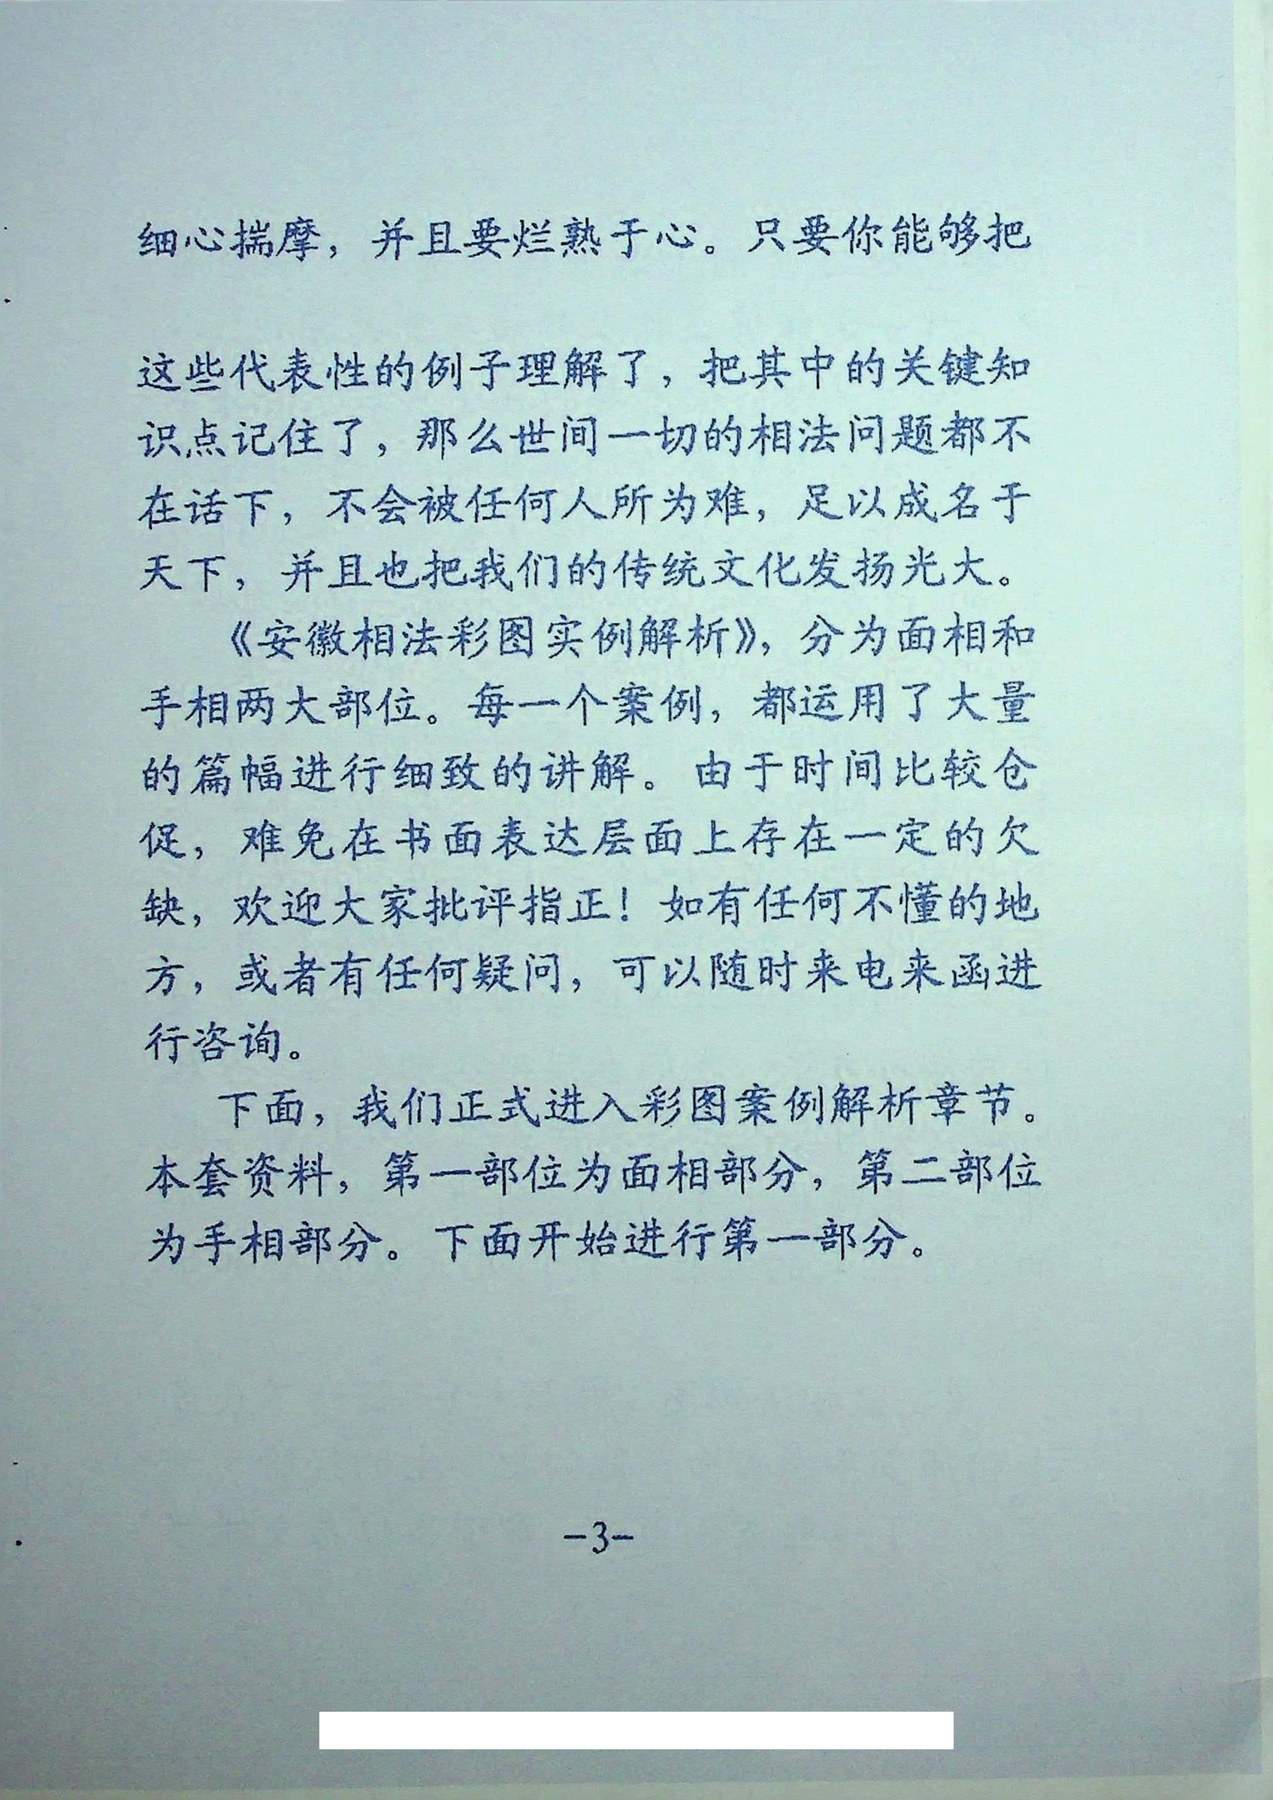 细心揣摩，并且要烂熟于心。只要你能够把
这些代表性的例子理解了，把其中的关键知
识点记住了，那么世间一切的相法问题都不
在话下，不会被任何人所为难，足以成名于
天下，并且也把我们的传统文化发扬光大。
《安徽相法彩图实例解析》，分为面相和
手相两大部位。每一个案例，都运用了大量
的篇幅进行细致的讲解。由于时间比较仓
促，难免在书面表达层面上存在一定的欠
缺，欢迎大家批评指正！如有任何不懂的地
方，或者有任何疑问，可以随时来电来函进
行咨询。
下面，我们正式进入彩图案例解析章节。
本套资料，第一部位为面相部分，第二部位
为手相部分。下面开始进行第一部分。
-3-